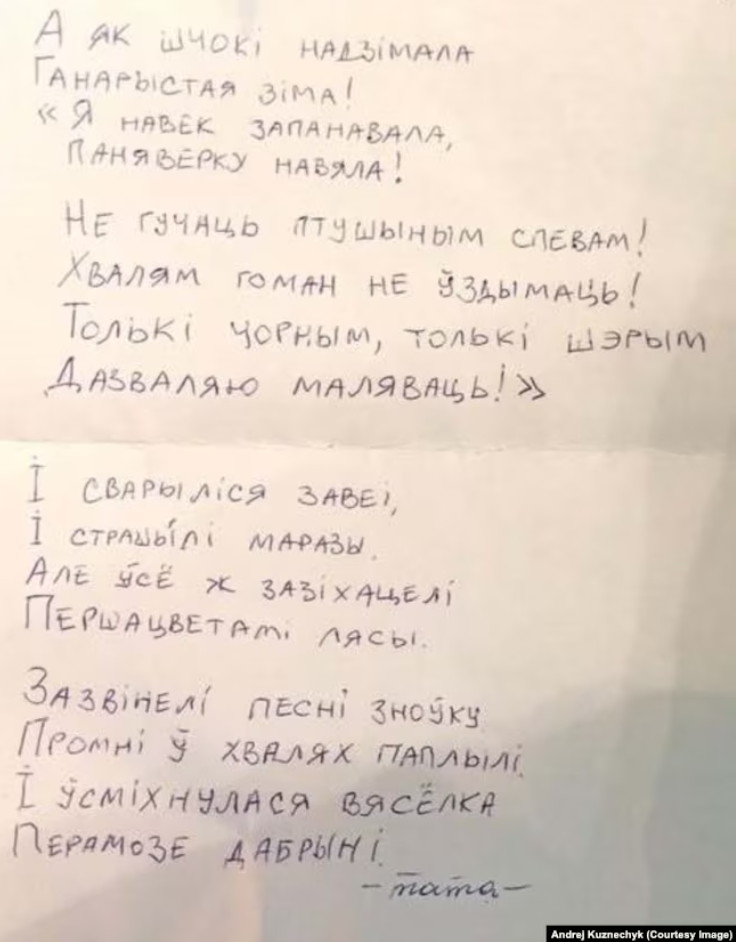 А як шчокі надзімала
Ганарыстая зіма!
«Я навек запанавала,
Паняверку навяла!
Не гучаць птушыным спевам!
Хвалям гоман не ўздымаць!
Толькі чорным, толькі шэрым
Дазваляю маляваць!»
І сварыліся завеі,
І страшылі маразы.
Але ўсё ж зазіхацелі
Першацветамі лясы.
Зазвінелі песні зноўку
Промні ў хвалях паплылі
І ўсміхнулася вясёлка
Перамозе дабрыні.
–тата–
Andrej Kuznechyk (Courtesy Image)